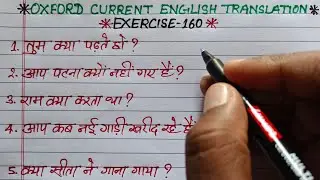 *OXFORD CURRENT ENGLISH TRANSLATION*
*EXERCISE-160*
1. तुम क्या पढ़ते हो ?
2. आप पटना क्यों नहीं गए हैं ?
3. राम क्या करता था ?
4. आप कब नई गाड़ी खरीद रहे हैं
5. क्या सीता ने गाना गाया ?